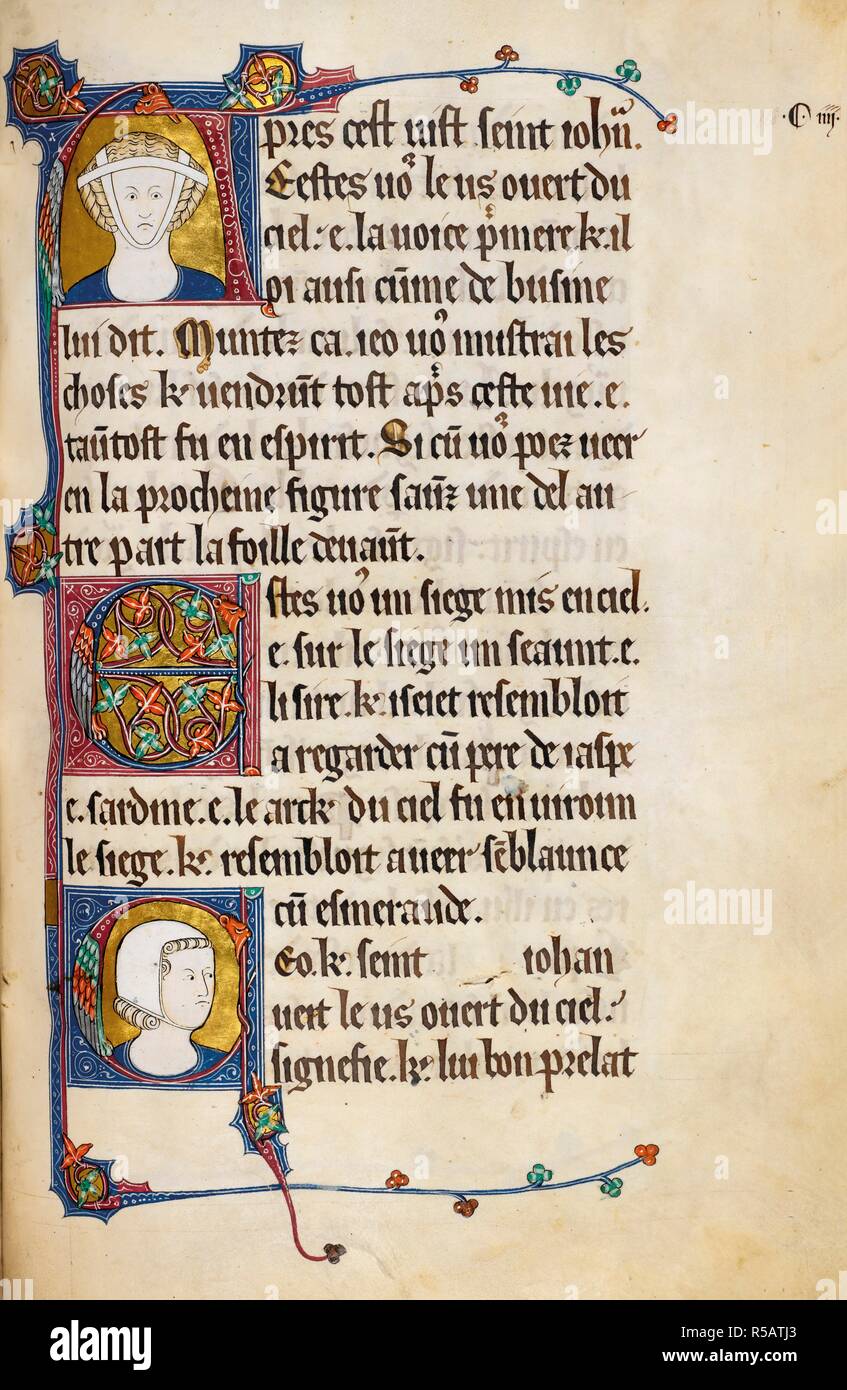 Apres cest vist seint iohn̄.
Eestes uoꝰ le us ouert du
ciel. e. la uoice p̄mere k̄ il
oi ausi cūme de busine
lui dit. Muntez ca. ieo uoꝰ mustrai les
choses k̄ uendrunt tost ap̄s ceste uie. e.
taūtost fu en espirit. Si cū uoꝰ poez ueer
en la procheine figure saūz une del au
tre part la foille deuaūt.
Estes uoꝰ un siege mis en ciel.
e. sur le siege un seaunt. e.
li sire. k̄. iseiet resembloit
a regarder cū pere de iaspe
e. sardine. e. le arck̄ du ciel fu enuiroun
le siege. k̄. resembloit aueer sēblaunce
cū esmeraude.
Ceo. k̄. seint iohan
uert le us ouert du ciel.
signefie. k̄. lui bon prelat
.C. iiij.
alamy
alamy
Image ID: R5ATJ3
www.alamy.com